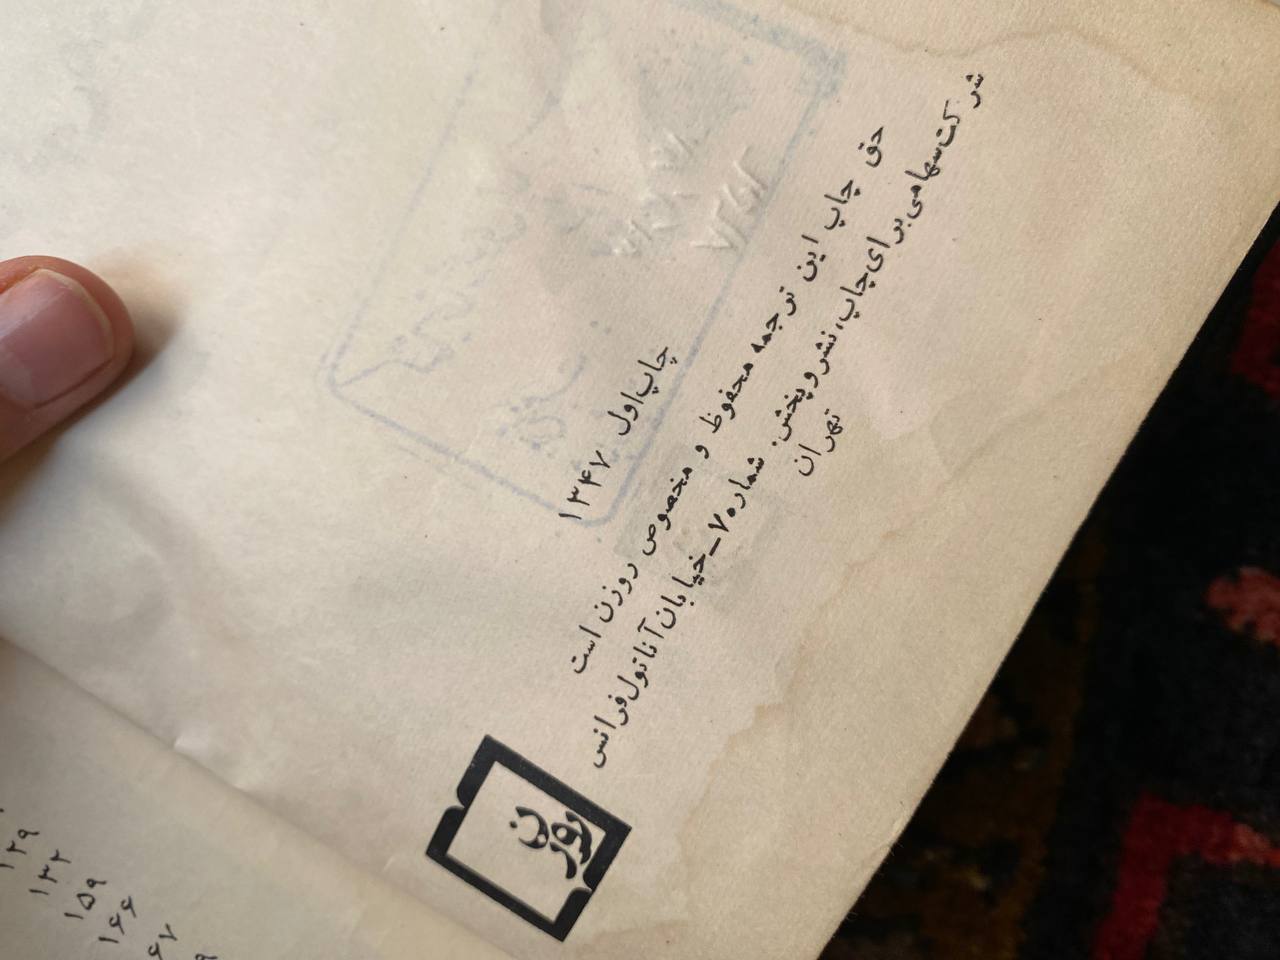 چاپ اول ۱۳۴۷
حق چاپ این ترجمه محفوظ و مخصوص روزن است
شرکت سهامی برای چاپ، نشر و پخش. شماره ۷ــخیابان آناتول فرانس
تهران
روزن
۱۲۹
۱۳۲
۱۵۹
۱۶۶
۶۷
۹